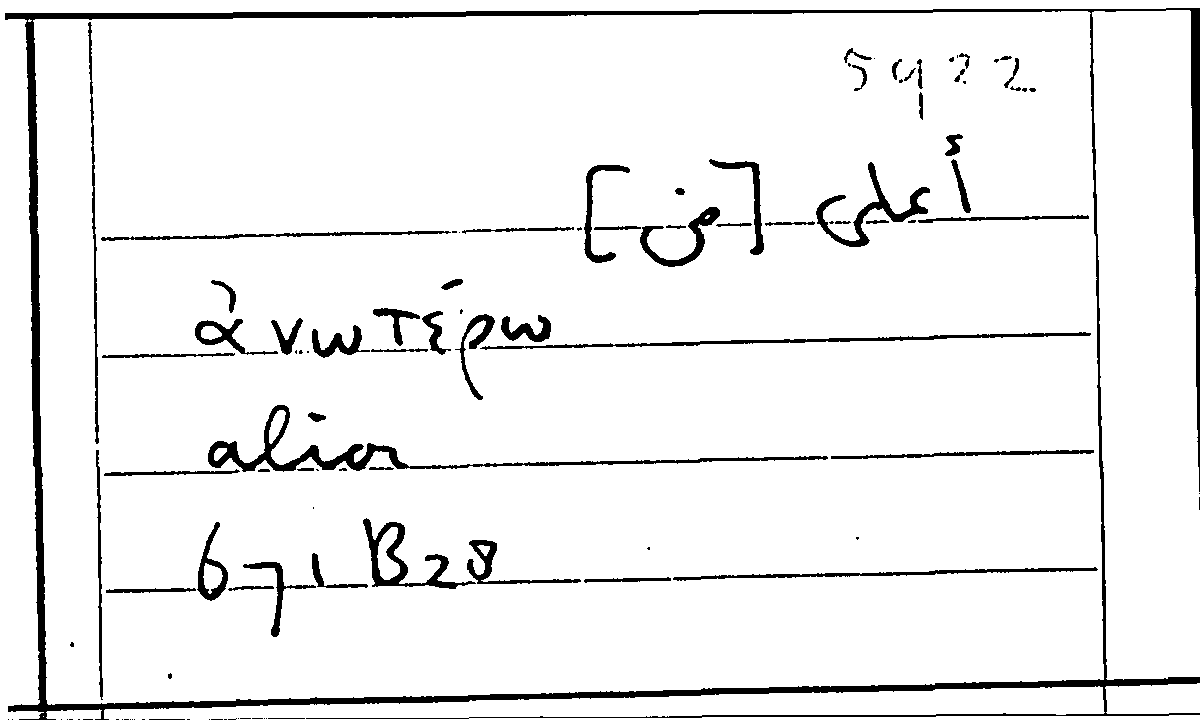 5922
أعلى [من]
ἀνωτέρω
alior
671 B 28